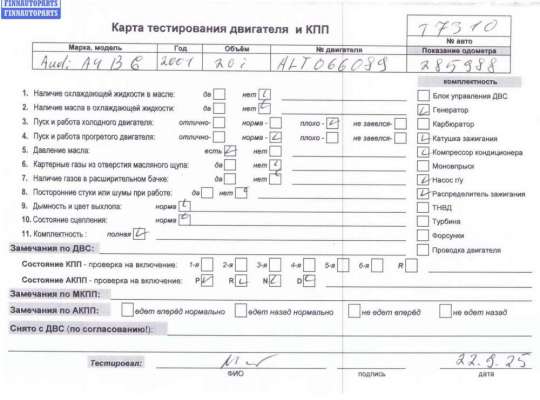 FINNAUTOPARTS
FINNAUTOPARTS
Карта тестирования двигателя и КПП
17310
№ авто
Марка, модель Год Объём № двигателя Показание одометра
Audi A4 B6 2001 20i ALT066089 285988
КОМПЛЕКТНОСТЬ
1. Наличие охлаждающей жидкости в масле: да нет
2. Наличие масла в охлаждающей жидкости: да нет
3. Пуск и работа холодного двигателя: отлично- норма - плохо - не завелся-
4. Пуск и работа прогретого двигателя: отлично- норма - плохо - не завелся-
5. Давление масла: есть нет
6. Картерные газы из отверстия масляного щупа: да нет
7. Наличие газов в расширительном бачке: да нет
8. Посторонние стуки или шумы при работе: да нет
9. Дымность и цвет выхлопа: норма
10. Состояние сцепления: норма
11. Комплектность : полная
Блок управления ДВС
Генератор
Карбюратор
Катушка зажигания
Компрессор кондиционера
Моновпрыск
Насос г/у
Распределитель зажигания
ТНВД
Турбина
Форсунки
Проводка двигателя
Замечания по ДВС:
Состояние КПП - проверка на включение: 1-я 2-я 3-я 4-я 5-я 6-я R
Состояние АКПП - проверка на включение: P R N D
Замечания по МКПП:
Замечания по АКПП: едет вперёд нормально едет назад нормально не едет вперёд не едет назад
Снято с ДВС (по согласованию!):
Тестировал: 22.9.25
ФИО подпись дата